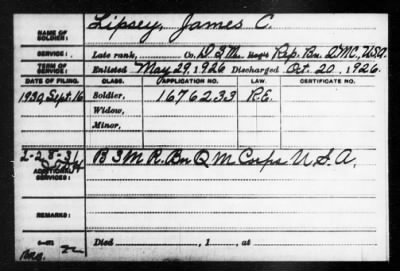 NAME OF SOLDIER: Lipsey, James C.
SERVICE: Late rank, Co. D 3 Mr. Reg't Rep. Bn. QMC, USA.
TERM OF SERVICE: Enlisted May 29, 1926 Discharged Oct. 20, 1926.
DATE OF FILING. CLASS. APPLICATION NO. LAW. CERTIFICATE NO.
1930, Sept. 16 Soldier, 1676233 R.E.
Widow,
Minor,
2-28-31 B 3 M R. Bn Q M Corps U.S.A.
ADDITIONAL SERVICES:
REMARKS:
Died , 1 , at